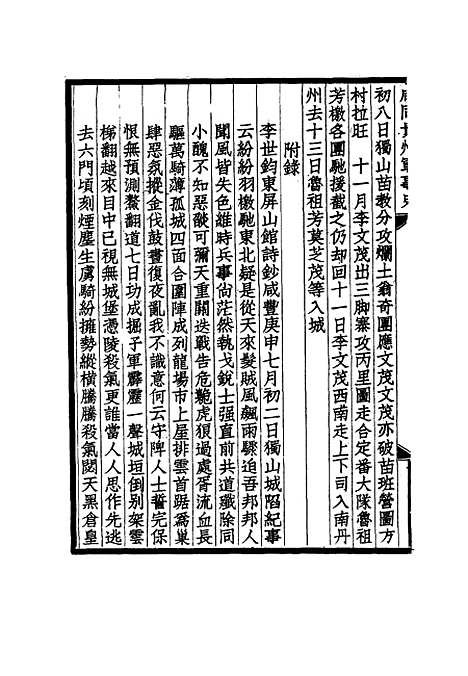 初八日獨山苗教分攻爛土翁奇團應文茂文茂亦破苗班營圖方
村拉旺　十一月李文茂出三脚寨攻丙里圖走合定番大隊魯祖
芳檄各團馳援截之仍却回十一日李文茂西南走上下司入南丹
州去十三日魯祖芳莫芝茂等入城
附錄
李世鈞東屏山館詩鈔咸豐庚申七月初二日獨山城陷紀事
云紛紛羽檄馳東北疑是從天來髮賊風飆雨驟迫吾邦邦人
聞風皆失色維時兵事尙茫然執戈銳士强直前共道殲除同
小醜不知惡燄可彌天重關迭戰告危難虎狼過處胥流血長
驅萬騎薄孤城四面合圍陣成列龍場市上屋排雲首踞爲巢
肆惡氛摐金伐鼓晝復夜亂我不識意何云守陴人士誓完保
恨無預測鰲翻道七日功成掘子軍霹靂一聲城垣倒別架雲
梯翻越來目中已視無城堡憑陵殺氣更誰當人人思作先逃
去六門頃刻煙塵生虜騎紛擁勢縱橫騰騰殺氣閟天黑倉皇